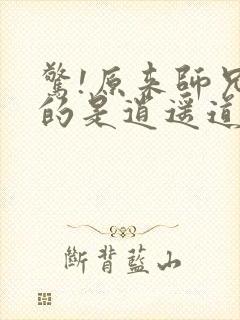 驚!原來師兄
的是逍遥道
斷背藍山